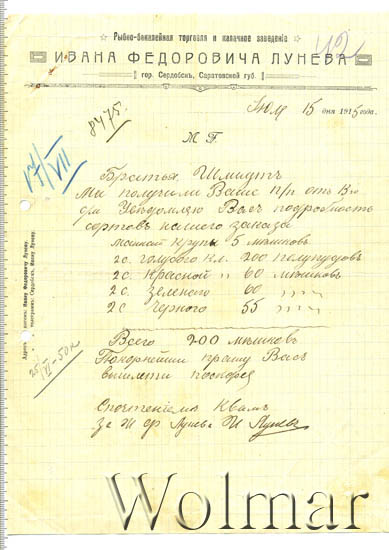 Рыбно-бакалейная торговля и калачное заведеніе
ИВАНА ФЕДОРОВИЧА ЛУНЕВА
гор. Сердобскъ, Саратовской губ.
42
Июля 15 дня 1915 года.
8475.
М. Г.
17/VII
Братья Шмидтъ
Мы получили Ваше п/п отъ 13го
с/м Уведомляю Васъ подробность
сортовъ нашего заказа
крупы 5 мешковъ
2с. голубого кл. 200 полпудовъ
2с. Красной " 60 мешковъ
2с. Зеленаго 60 " "
2с Чернаго 55 " "
Всего 200 мешковъ
Покорнейши прашу Васъ
выслети поскорея
Спочтениемъ Квамъ
За И Ф Луневъ И Луневъ
Адресъ: писемъ: Ивану Федоровичу Луневу.
телеграммъ: Сердобскъ, Ивану Луневу.
Wolmar